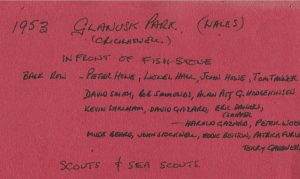 1953 GLANUSK PARK. (WALES)
(CRICKHOWELL)
IN FRONT OF FISH STONE
BACK ROW - PETER HOWE, LIONEL HALL, JOHN HOWE, TOM TANNER
DAVID SHAW, BOB SIMMONDS, ALAN AIT G. HODGKINSON
KEVIN DAVID GAZARD, ERIC DANGERS,
HAROLD GAZARD, PETER WOOD
MICK BEARD, JOHN STOCKWELL, EDDIE BOLTON, PATRICK
TERRY GARDNER
SCOUTS & SEA SCOUTS